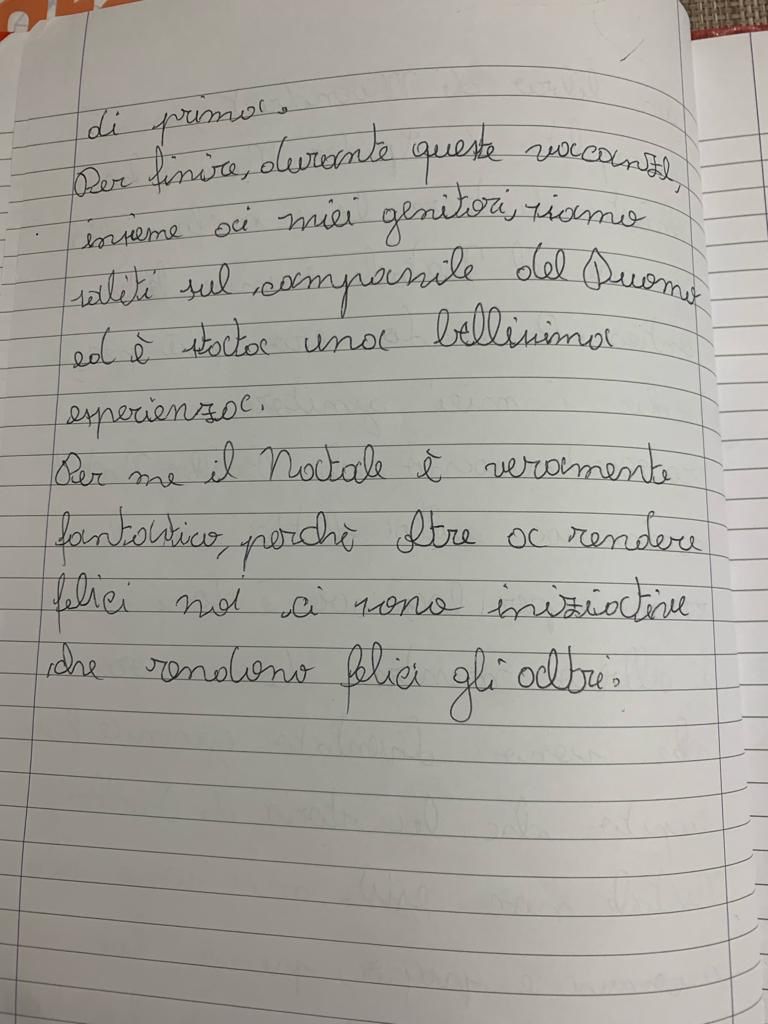 di prima.
Per finire, durante queste vaccanze,
insieme ai miei genitori, siamo
saliti sul campanile del Duomo
ed è stata una bellissima
esperienza.
Per me il Natale è veramente
fantastico, perchè oltre a rendere
felici noi ci sono iniziative
che rendono felici gli altri.